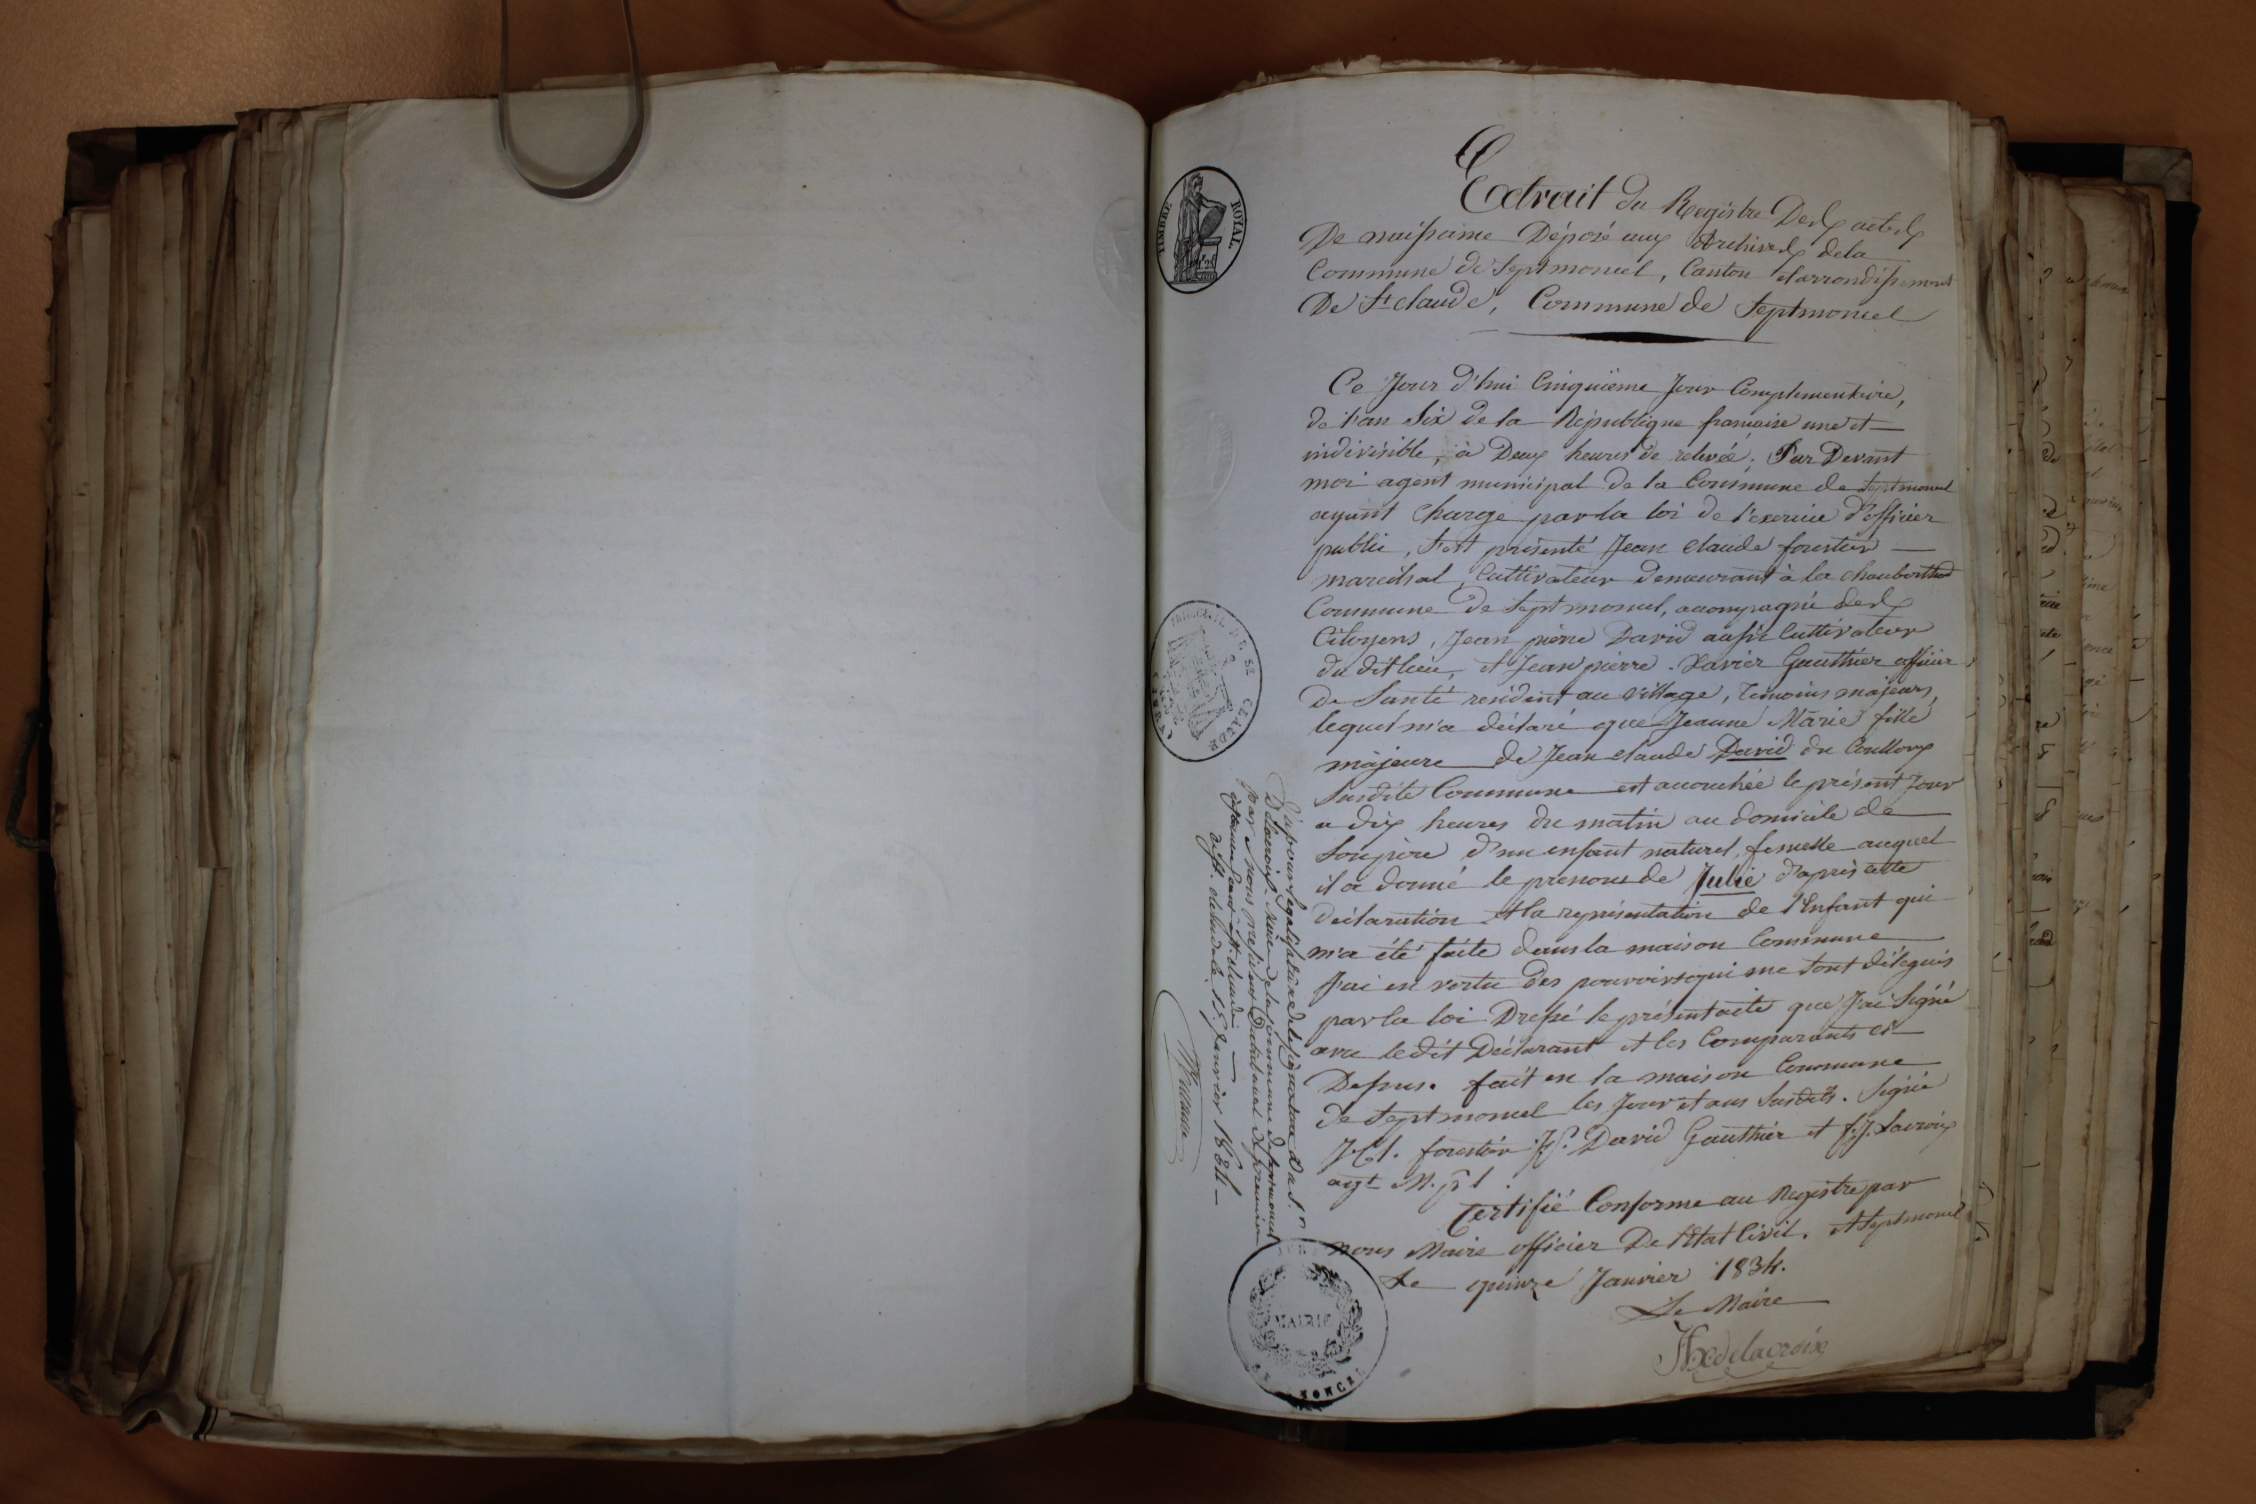 Extrait du Registre Des actes
De naissance Déposé aux Archives dela
Commune de Septmoncel, Canton et arrondissement
De St claude, Commune de Septmoncel
Ce Jour d'hui Cinquième Jour Complementaire,
de l'an Six de la République francaise une et
indivisible, à Deux heures de relevée, Par Devant
moi agent municipal de la Commune de Septmoncel
ayant charge par la loi de l'exercice d'officier
public, s'est présenté Jean claude forestier
marechal, Cultivateur demeurant à la
Commune de Septmoncel, accompagné des
Citoyens, Jean pierre David aussi Cultivateur
du dit lieu, et Jean pierre Xavier Gauthier officier
De Santé resident au village, temoins majeurs,
lequel m'a déclaré que Jeanne Marie fille
majeure de Jean claude David du
Susdite Commune est accouchée le présent Jour
a dix heures du matin au domicile de
Son père d'un enfant naturel, femelle auquel
il a donné le prenom de Julie d'après cette
déclaration et la représentation de l'Enfant qui
m'a été faite dans la maison Commune
J'ai en vertu des pouvoirs qui me sont délegués
par la loi Dressé le présent acte que J'ai Signé
avec le dit Déclarant et les Comparants ci
Dessus. fait en la maison Commune
de Septmoncel les Jour et an Susdits. Signé
J. Cl. forestier J. P. David Gauthier et f. J. Lacroix
agt M. pal
Certifié Conforme au Registre par
nous Maire officier De l'Etat Civil, à Septmoncel
Le quinze Janvier 1834.
Le Maire
delacroix
TIMBRE ROYAL
DE St CLAUDE
Vu pour légalisation de la signature de Mr
Delacroix Maire de la commune de Septmoncel
par Nous
St claude
St claude le 15 Janvier 1834
MAIRIE